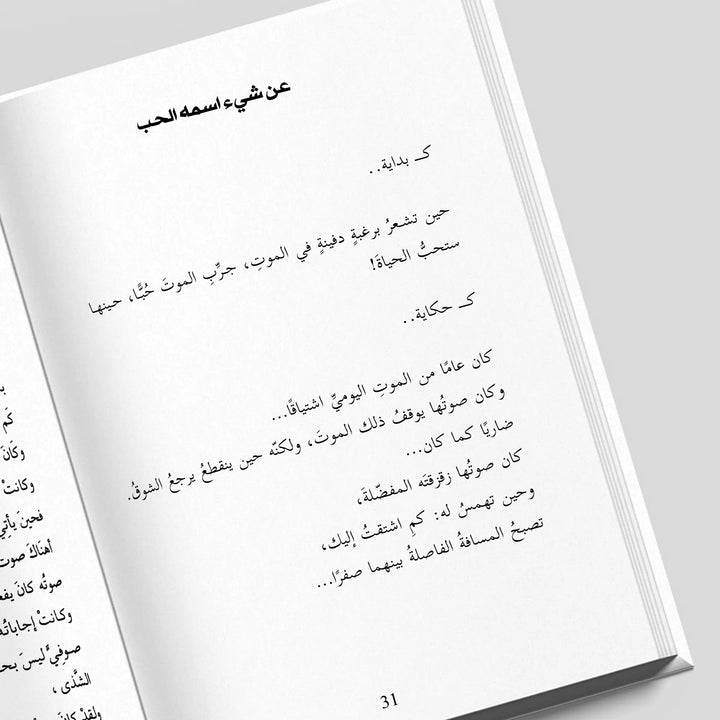 عن شيء اسمه الحب
كـ بداية..
حين تشعرُ برغبةٍ دفينةٍ في الموتِ، جرِّبِ الموتَ حُبًّا، حينها
ستحبُّ الحياةَ!
كـ حكاية..
كان عامًا من الموتِ اليوميِّ اشتياقًا...
وكان صوتُها يوقفُ ذلك الموتَ، ولكنّه حين ينقطعُ يرجعُ الشوقُ.
ضاريًا كما كان...
كان صوتُها زقزقتَه المفضّلةَ،
وحين تهمسُ له: كمِ اشتقتُ إليك،
تصبحُ المسافةُ الفاصلةُ بينهما صفرًا...
31
كَم
وكَانَ
وكانتْ
فحينَ يأتِي
أهنَاكَ صوت
صوتُه كانَ
وكانتْ
صوفيٍّ ليسَ
الشَّذى،
ولقدْ كانَ